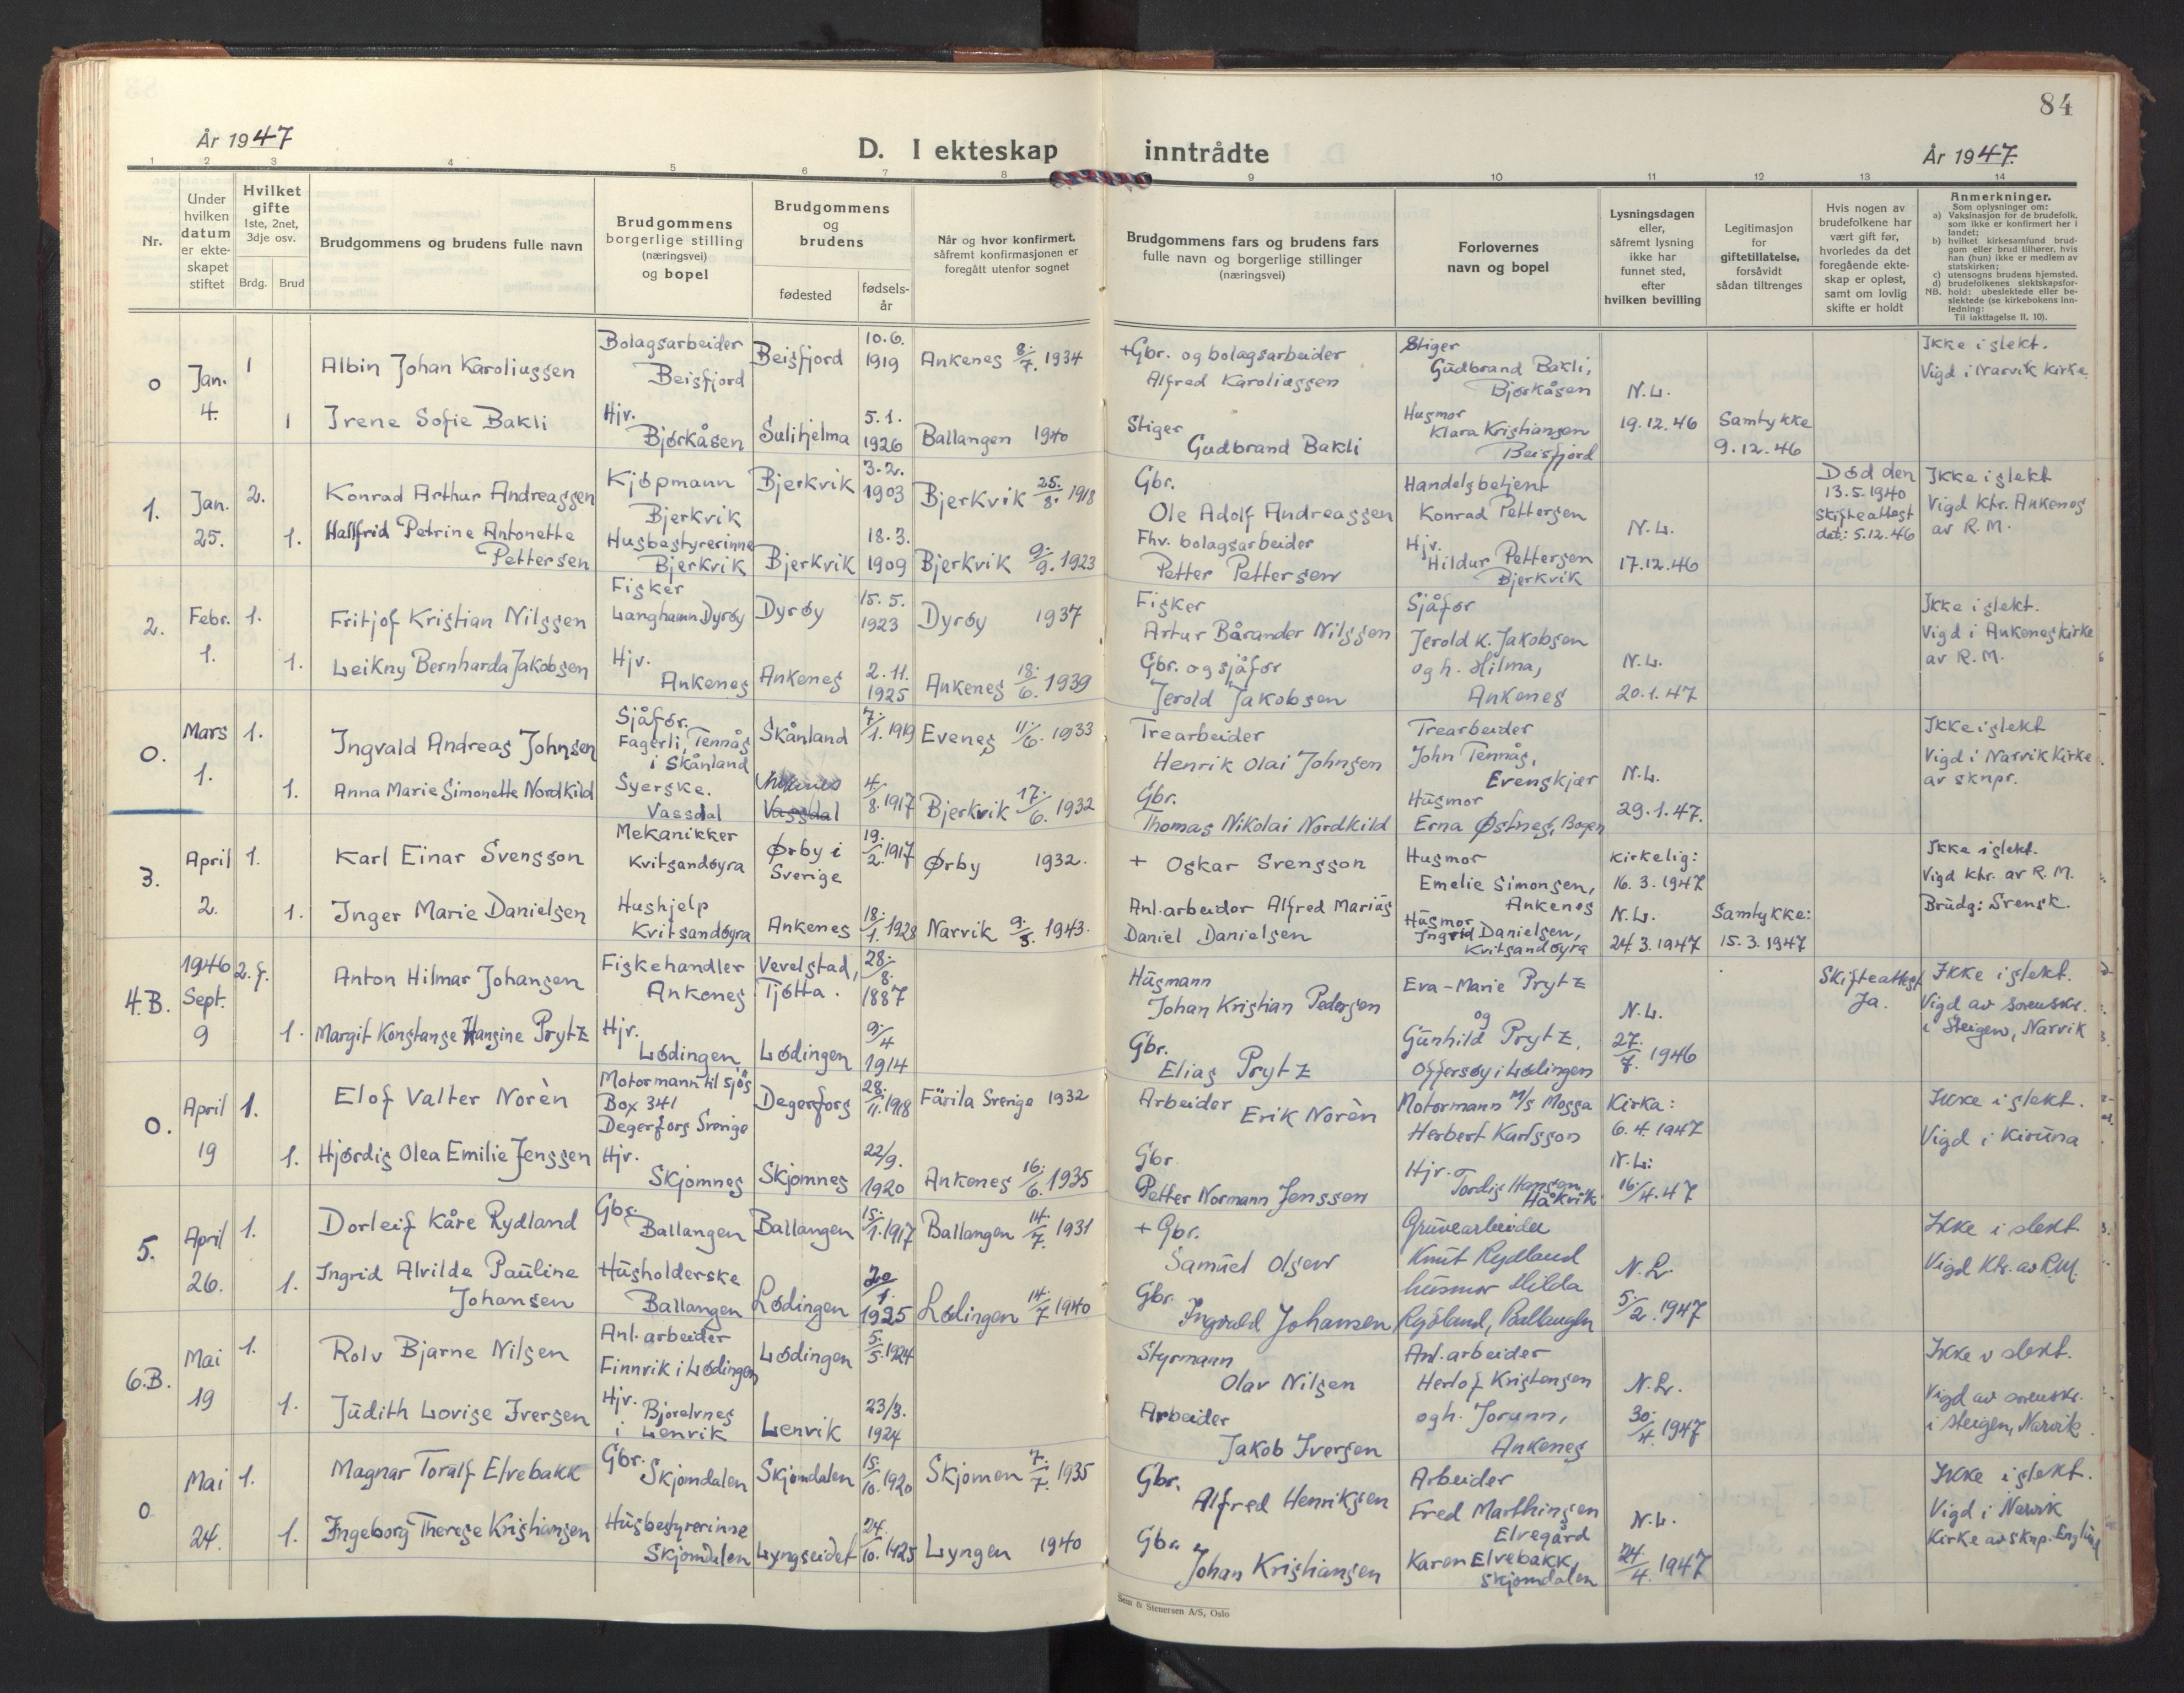 84
År 1947
D. I ekteskap inntrådte
År 1947.
1 2 3 4 5 6 7 8 9 10 11 12 13 14
Nr.
Under hvilken datum er ekteskapet stiftet
Hvilket gifte
1ste, 2net, 3dje osv.
Brdg. Brud
Brudgommens og brudens fulle navn
Brudgommens borgerlige stilling (næringsvei) og bopel
Brudgommens og brudens
fødested
fødselsår
Når og hvor konfirmert, såfremt konfirmasjonen er foregått utenfor sognet
Brudgommens fars og brudens fars fulle navn og borgerlige stillinger (næringsvei)
Forlovernes navn og bopel
Lysningsdagen eller, såfremt lysning ikke har funnet sted, efter hvilken bevilling
Legitimasjon for giftetillatelse, forsåvidt sådan tiltrenges
Hvis nogen av brudefolkene har vært gift før, hvorledes da det foregående ekteskap er opløst, samt om lovlig skifte er holdt
Anmerkninger.
Som oplysninger om:
a) Vaksinasjon for de brudefolk, som ikke er konfirmert her i landet;
b) hvilket kirkesamfund brudgom eller brud tilhører, hvis han (hun) ikke er medlem av statskirken;
c) utensogns brudens hjemsted.
d) brudefolkenes slektskapsforhold: ubeslektede eller beslektede (se kirkebokens innledning:
NB. Til iakttagelse II. 10).
0 Jan. 4. 1 Albin Johan Karoliussen Bolagsarbeider Beisfjord Beisfjord 10.6. 1919 Ankenes 8/7. 1934 +Gbr. og bolagsarbeider Alfred Karoliussen Stiger Gudbrand Bakli, Bjørkåsen N.L. Ikke i slekt. Vigd i Narvik kirke.
1 Irene Sofie Bakli Hjv. Bjørkåsen Sulitjelma 5.1. 1926 Ballangen 1940 Stiger Gudbrand Bakli Husmor Klara Kristiansen Beisfjord 19.12.46 Samtykke 9.12.46
1. Jan. 25. 2. Konrad Arthur Andreassen Kjøpmann Bjerkvik Bjerkvik 3.2. 1903 Bjerkvik 25./8. 1918 Gbr. Ole Adolf Andreassen Handelsbetjent Konrad Pettersen N.L. Død den 13.5.1940 Skifteattest dat: 5.12.46 Ikke i slekt Vigd ktr. Ankenes av R.M.
1. Hallfrid Petrine Antonette Pettersen Husbestyrerinne Bjerkvik Bjerkvik 18.3. 1909 Bjerkvik 9./9. 1923 Fhv. bolagsarbeider Petter Pettersen Hjv. Hildur Pettersen Bjerkvik 17.12.46
2. Febr. 1. 1. Fritjof Kristian Nilssen Fisker Langhamn Dyrøy Dyrøy 15.5. 1923 Dyrøy 1937 Fisker Artur Bårander Nilssen Sjåfør Jerold K. Jakobsen og h. Hilma, Ankenes N.L. 20.1.47 Ikke i slekt. Vigd i Ankenes kirke av R.M.
1. Leikny Bernharda Jakobsen Hjv. Ankenes Ankenes 2.11. 1925 Ankenes 18./6. 1939 Gbr. og sjåfør Jerold Jakobsen
0. Mars 1. 1. Ingvald Andreas Johnsen Sjåfør. Fagerli, Tennås i Skånland Skånland 7./1. 1919 Evenes 11./6. 1933 Trearbeider Henrik Olai Johnsen Trearbeider John Tennås, Evenskjær N.L. Ikke i slekt Vigd i Narvik Kirke av sknpr.
1. Anna Marie Simonette Nordkild Syerske. Vassdal Vassdal 4./8. 1917 Bjerkvik 17./6. 1932 Gbr. Thomas Nikolai Nordkild Husmor Erna Østnes, Bogen 29.1.47.
3. April 2. 1. Karl Einar Svensson Mekanikker Kvitsandøyra Ørby i Sverige 19./2. 1917 Ørby 1932. + Oskar Svensson Husmor Emelie Simonsen, Ankenes Kirkelig: 16.3.1947 Ikke i slekt. Vigd ktr. av R.M. Brudg: Svensk.
1. Inger Marie Danielsen Hushjelp Kvitsandøyra Ankenes 18./1. 1928 Narvik 9./5. 1943. Anl.arbeider Alfred Mariùs Daniel Danielsen Husmor Ingrid Danielsen, Kvitsandøyra N.L. 24.3.1947 Samtykke: 15.3.1947
4.B. 1946 Sept. 9 2.g. Anton Hilmar Johansen Fiskehandler Ankenes Vevelstad, Tjøtta. 28./8. 1887 Husmann Johan Kristian Pedersen Eva-Marie Prytz og N.L. Skifteattest Ja. Ikke i slekt. Vigd av sorenskr. i Steigen, Narvik
1. Margit Konstanse Hansine Prytz Hjv. Lødingen Lødingen 9./4 1914 Gbr. Elias Prytz Gunhild Prytz, Offersøy i Lødingen 27./7. 1946
0. April 19 1. Elof Valter Norèn Motormann til sjøs Box 341 Degerfors Sverige Degerfors 28./11. 1918 Färila Sverige 1932 Arbeider Erik Norèn Motormann M/S Mossa Herbert Karlsson Kirka: 6.4.1947 Ikke i slekt. Vigd i Kiruna
1. Hjørdis Olea Emilie Jenssen Hjv. Skjomnes Skjomnes 22/9. 1920 Ankenes 16./6. 1935 Gbr. Petter Normann Jenssen Hjv. Tordis Hansen Håkvik N.L: 16./4.47
5. April 26. 1. Dorleif Kåre Rydland Gbr. Ballangen Ballangen 15./1. 1917 Ballangen 14./7. 1931 + Gbr. Samuel Olsen Gruvearbeider Knut Rydland N.L. Ikke i slekt Vigd Ktr. av R.M.
1. Ingrid Alvilde Pauline Johansen Husholderske Ballangen Lødingen 20/1. 1925 Lødingen 14./7 1940 Gbr. Ingvald Johansen husmor Hilda Rydland, Ballangen 5./2. 1947
6.B. Mai 19 1. Rolv Bjarne Nilsen Anl.arbeider Finnvik i Lødingen Lødingen 5./5. 1924 Styrmann Olav Nilsen Anl.arbeider Herlof Kristensen N.L. Ikke i slekt. Vigd av sorenskr. i Steigen, Narvik.
1. Judith Lovise Iversen Hjv. Bjorelvnes i Lenvik Lenvik 23/3. 1924 Arbeider Jakob Iversen og h. Jorunn, Ankenes 30./4. 1947
0 Mai 24. 1. Magnar Toralf Elvebakk Gbr. Skjomdalen Skjomdalen 15./10. 1920 Skjomen 7./7. 1935 Gbr. Alfred Henriksen Arbeider Fred Marthinsen Elvegård N.L. Ikke i slekt. Vigd i Narvik Kirke av sknp.
1. Ingeborg Therese Kristiansen Husbestyrerinne Skjomdalen Lyngseidet 24./10. 1925 Lyngen 1940 Gbr. Johan Kristiansen Karen Elvebakk, Skjomdalen 24./4. 1947
Sem & Stenersen A/S, Oslo